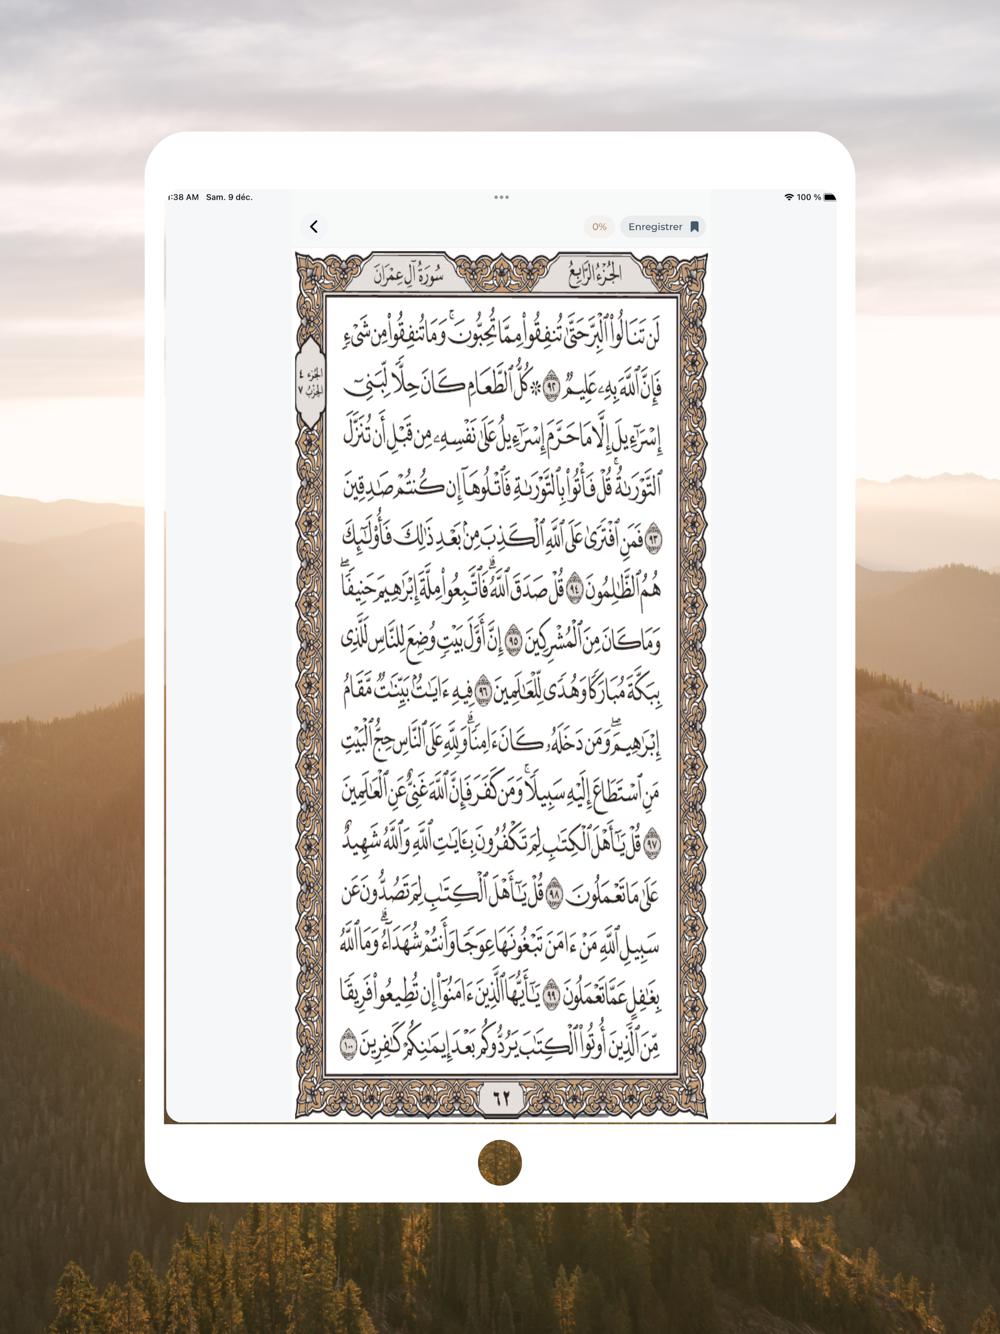 :38 AM Sam. 9 déc.
100 %
0% Enregistrer
سُورَةُ آلِ عِمْرَانَ الجُزْءُ الرَّابِعُ
الجزء ٤
الحزب ٧
لَن تَنَالُوا۟ ٱلْبِرَّ حَتَّىٰ تُنفِقُوا۟ مِمَّا تُحِبُّونَ ۚ وَمَا تُنفِقُوا۟ مِن شَىْءٍ
فَإِنَّ ٱللَّهَ بِهِۦ عَلِيمٌ ٩٢ ۞ كُلُّ ٱلطَّعَامِ كَانَ حِلًّا لِّبَنِىٓ
إِسْرَٰٓءِيلَ إِلَّا مَا حَرَّمَ إِسْرَٰٓءِيلُ عَلَىٰ نَفْسِهِۦ مِن قَبْلِ أَن تُنَزَّلَ
ٱلتَّوْرَىٰةُ ۗ قُلْ فَأْتُوا۟ بِٱلتَّوْرَىٰةِ فَٱتْلُوهَآ إِن كُنتُمْ صَٰدِقِينَ
٩٣ فَمَنِ ٱفْتَرَىٰ عَلَى ٱللَّهِ ٱلْكَذِبَ مِنۢ بَعْدِ ذَٰلِكَ فَأُو۟لَٰٓئِكَ
هُمُ ٱلظَّٰلِمُونَ ٩٤ قُلْ صَدَقَ ٱللَّهُ ۗ فَٱتَّبِعُوا۟ مِلَّةَ إِبْرَٰهِيمَ حَنِيفًا ۖ
وَمَا كَانَ مِنَ ٱلْمُشْرِكِينَ ٩٥ إِنَّ أَوَّلَ بَيْتٍ وُضِعَ لِلنَّاسِ لَلَّذِى
بِبَكَّةَ مُبَارَكًا وَهُدًى لِّلْعَٰلَمِينَ ٩٦ فِيهِ ءَايَٰتٌۢ بَيِّنَٰتٌ مَّقَامُ
إِبْرَٰهِيمَ ۖ وَمَن دَخَلَهُۥ كَانَ ءَامِنًا ۗ وَلِلَّهِ عَلَى ٱلنَّاسِ حِجُّ ٱلْبَيْتِ
مَنِ ٱسْتَطَاعَ إِلَيْهِ سَبِيلًا ۚ وَمَن كَفَرَ فَإِنَّ ٱللَّهَ غَنِىٌّ عَنِ ٱلْعَٰلَمِينَ
٩٧ قُلْ يَٰٓأَهْلَ ٱلْكِتَٰبِ لِمَ تَكْفُرُونَ بِـَٔايَٰتِ ٱللَّهِ وَٱللَّهُ شَهِيدٌ
عَلَىٰ مَا تَعْمَلُونَ ٩٨ قُلْ يَٰٓأَهْلَ ٱلْكِتَٰبِ لِمَ تَصُدُّونَ عَن
سَبِيلِ ٱللَّهِ مَنْ ءَامَنَ تَبْغُونَهَا عِوَجًا وَأَنتُمْ شُهَدَآءُ ۗ وَمَا ٱللَّهُ
بِغَٰفِلٍ عَمَّا تَعْمَلُونَ ٩٩ يَٰٓأَيُّهَا ٱلَّذِينَ ءَامَنُوٓا۟ إِن تُطِيعُوا۟ فَرِيقًا
مِّنَ ٱلَّذِينَ أُوتُوا۟ ٱلْكِتَٰبَ يَرُدُّوكُم بَعْدَ إِيمَٰنِكُمْ كَٰفِرِينَ ١٠٠
٦٢